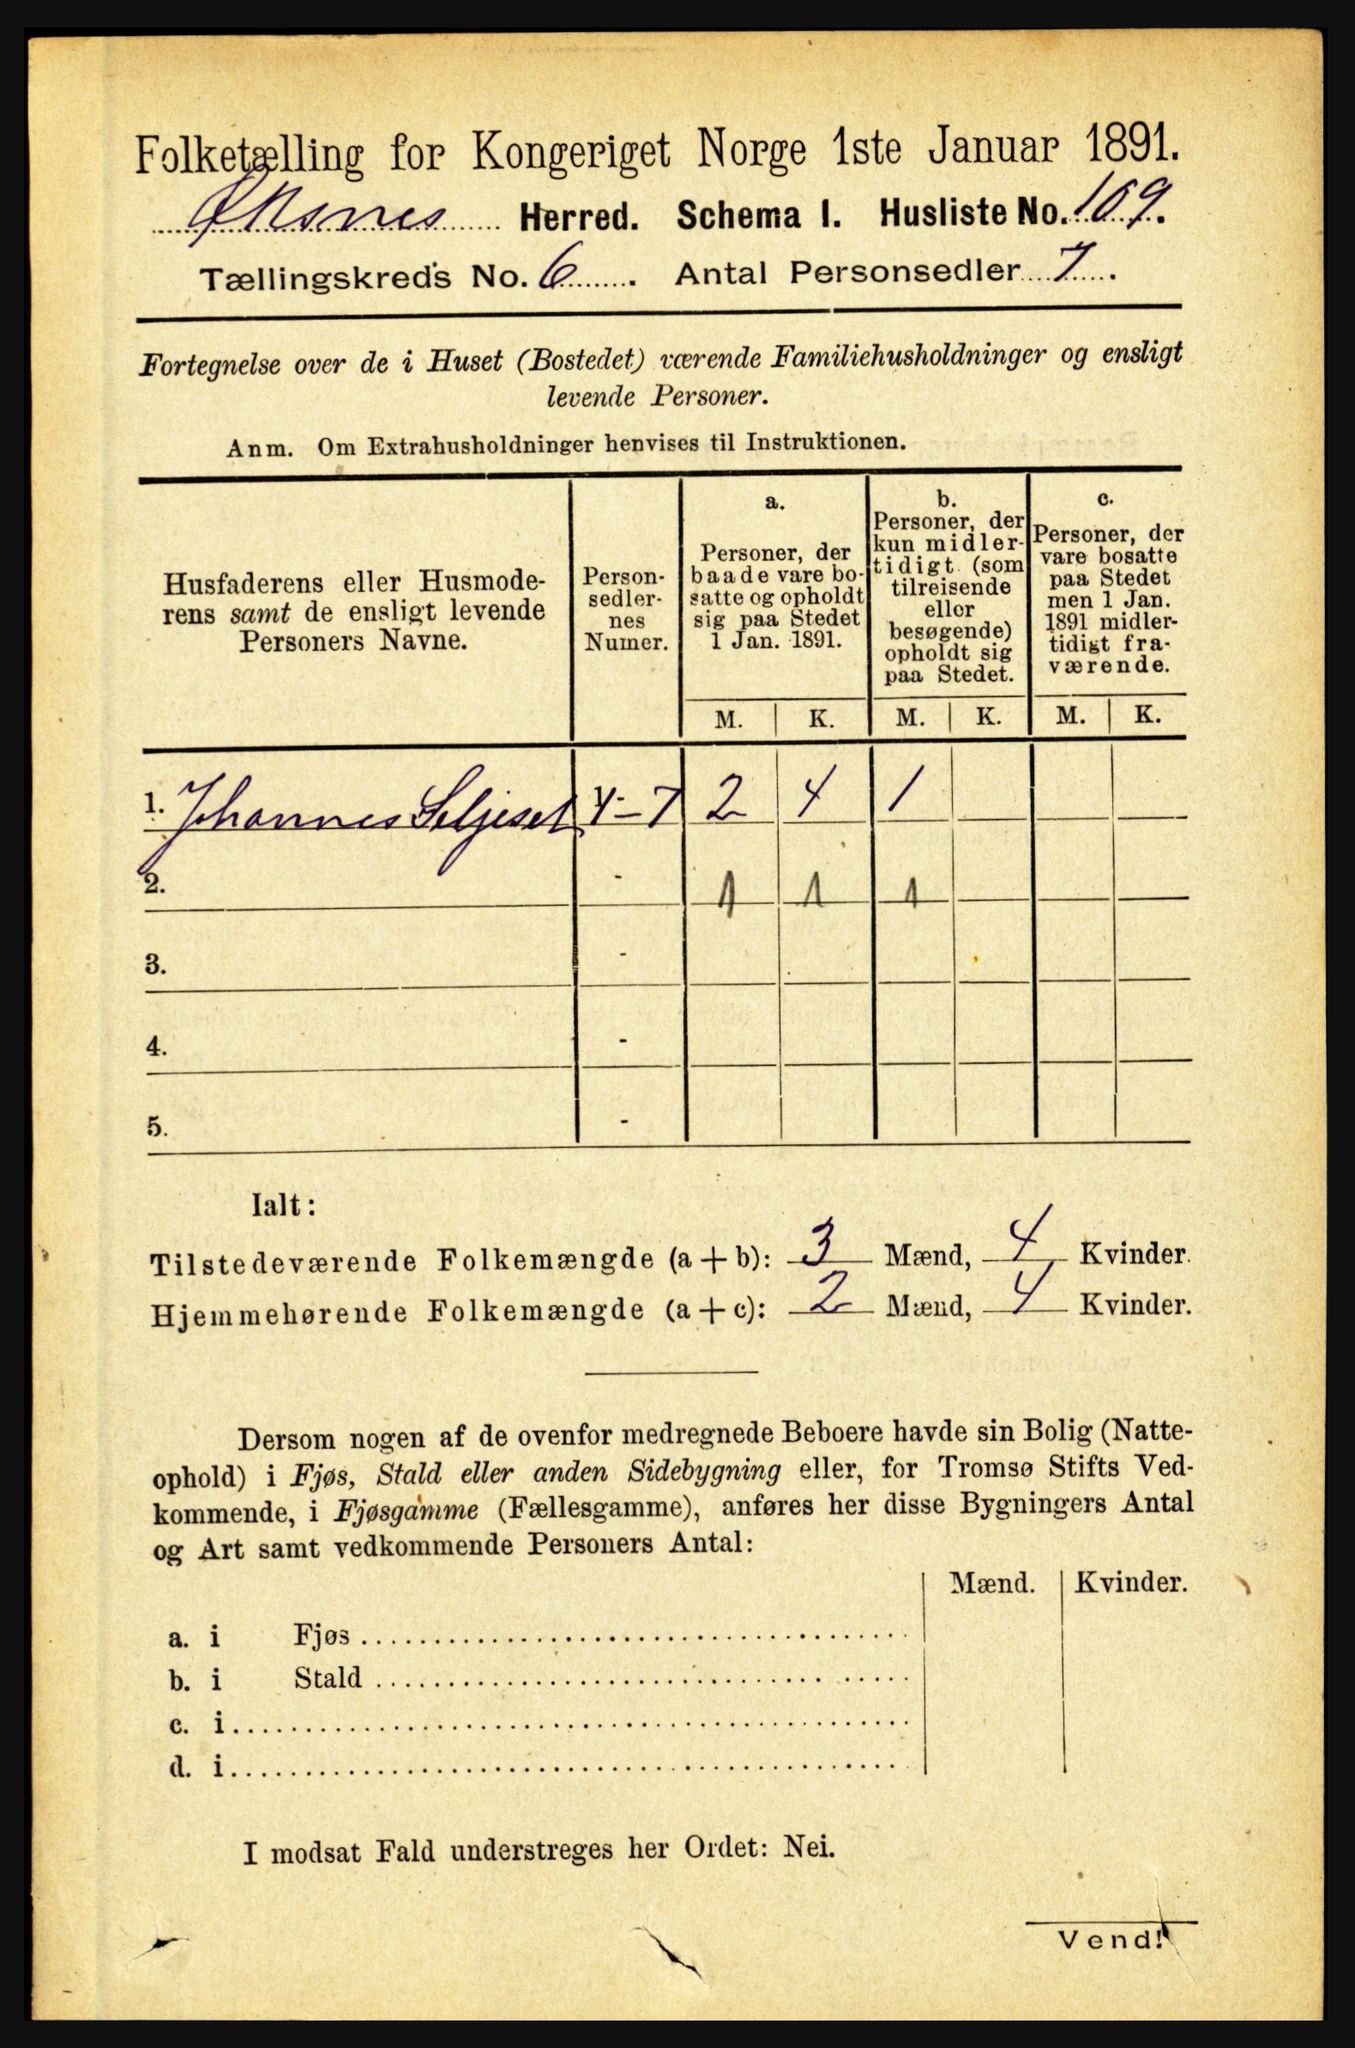 Folketælling for Kongeriget Norge 1ste Januar 1891.
Øksnes Herred. Schema I. Husliste No. 109.
Tællingskreds No. 6. Antal Personsedler 7.
Fortegnelse over de i Huset (Bostedet) værende Familiehusholdninger og ensligt
levende Personer.
Anm. Om Extrahusholdninger henvises til Instruktionen.
Husfaderens eller Husmode-
rens samt de ensligt levende
Personers Navne.
Person-
sedler-
nes
Numer.
a.
Personer, der
baade vare bo-
satte og opholdt
sig paa Stedet
1 Jan. 1891.
b.
Personer, der
kun midler-
tidigt (som
tilreisende
eller
besøgende)
opholdt sig
paa Stedet.
c.
Personer, der
vare bosatte
paa Stedet
men 1 Jan.
1891 midler-
tidigt fra-
værende.
M. K. M. K. M. K.
1. Johannes Seljeset 1-7 2 4 1
2. - 1 1 1
3. -
4. -
5. -
Ialt:
Tilstedeværende Folkemængde (a + b): 3 Mænd, 4 Kvinder.
Hjemmehørende Folkemængde (a + c): 2 Mænd, 4 Kvinder.
Dersom nogen af de ovenfor medregnede Beboere havde sin Bolig (Natte-
ophold) i Fjøs, Stald eller anden Sidebygning eller, for Tromsø Stifts Ved-
kommende, i Fjøsgamme (Fællesgamme), anføres her disse Bygningers Antal
og Art samt vedkommende Personers Antal:
Mænd. Kvinder.
a. i Fjøs
b. i Stald
c. i
d. i
I modsat Fald understreges her Ordet: Nei.
Vend!